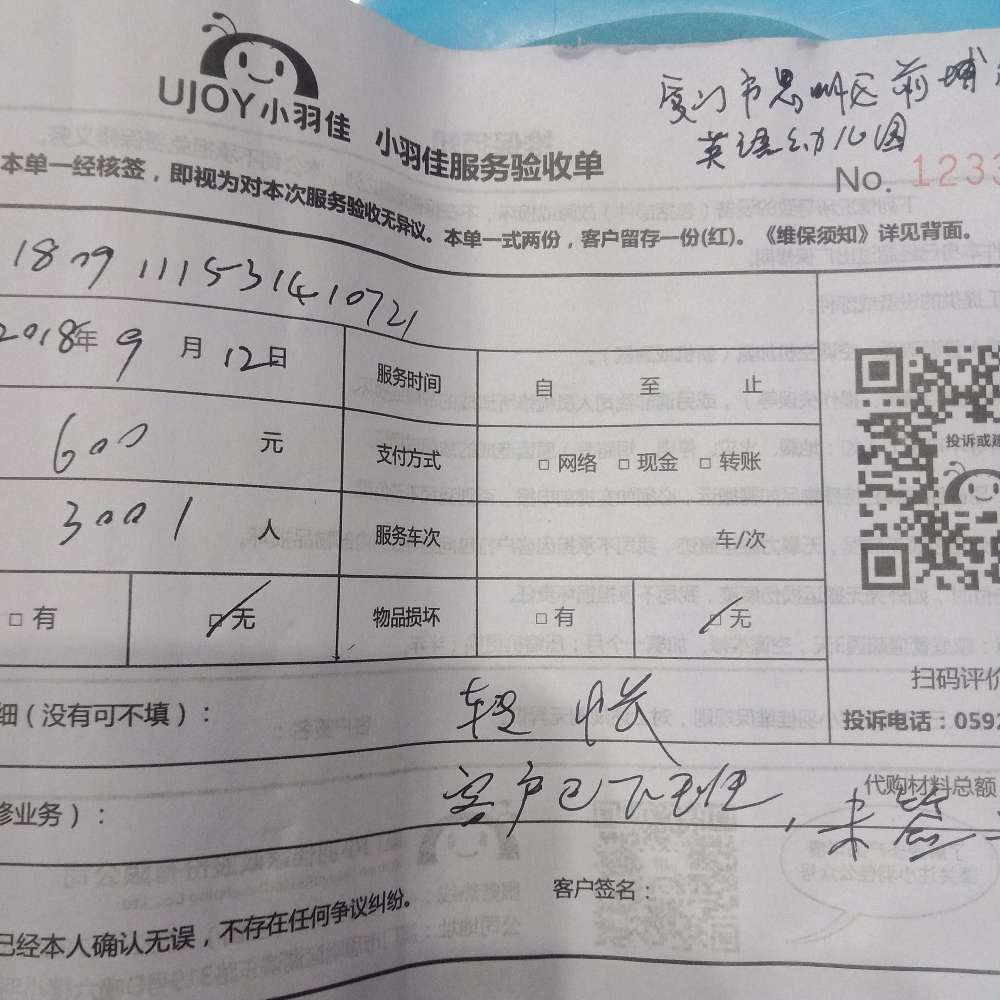 UJOY小羽佳 小羽佳服务验收单
厦门市思明区前埔
英语幼儿园
No. 1233
本单一经核签，即视为对本次服务验收无异议。本单一式两份，客户留存一份(红)。《维保须知》详见背面。
1809111531410721
2018年9月12日 服务时间 自 至 止
600 元 支付方式 □ 网络 □ 现金 □ 转账
人 服务车次 车/次
□ 有 □ 无 物品损坏 □ 有 □ 无
投诉或建
扫码评价
细（没有可不填）：
投诉电话：0592
代购材料总额
修业务）：
客户已下班, 未签
客户签名：
已经本人确认无误，不存在任何争议纠纷。